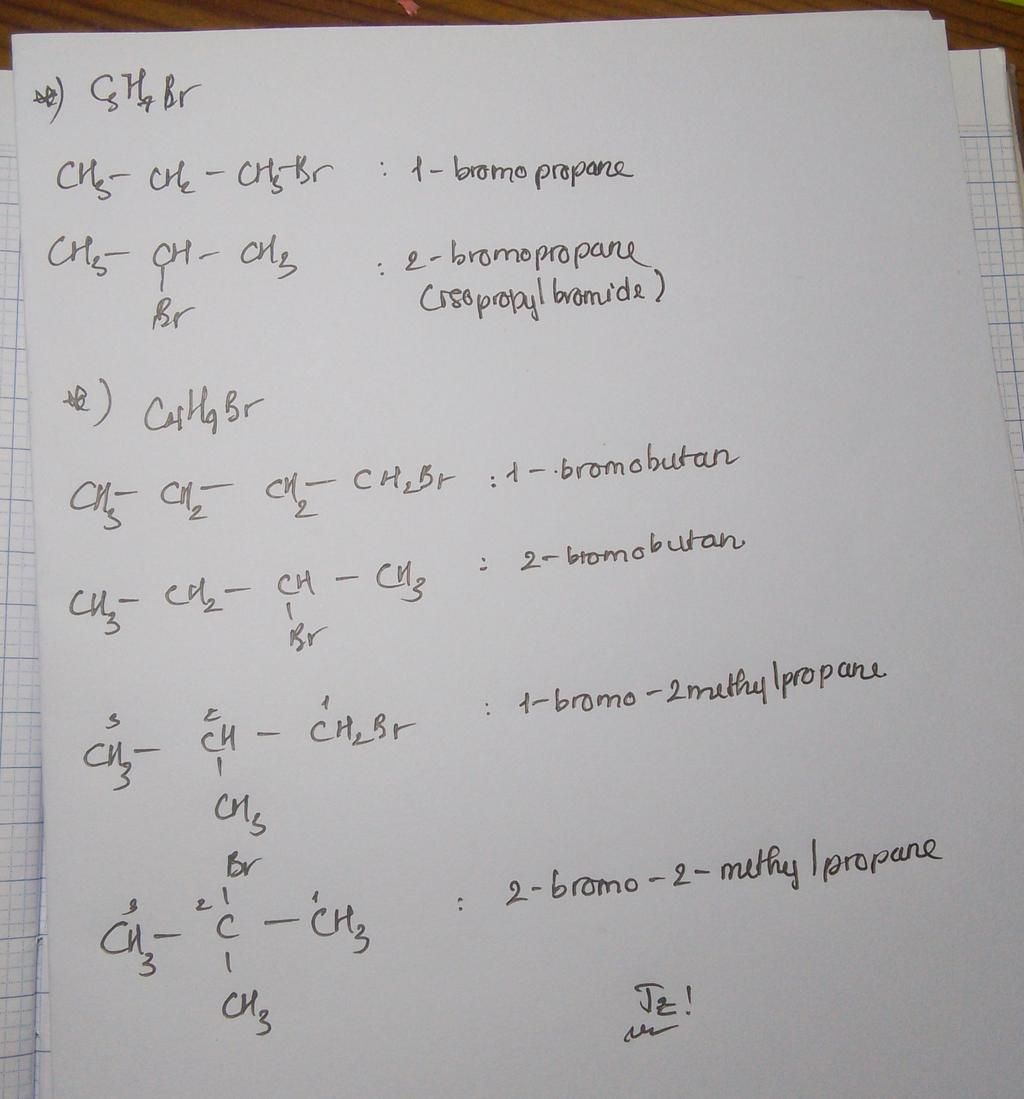 *) C₃H₇Br
CH₃ – CH₂ – CH₃-Br : 1-bromopropane
CH₃ – CH – CH₃ : 2-bromopropane
Br (isopropyl bromide)
*) C₄H₉Br
CH₃ – CH₂ – CH₂ – CH₂Br : 1-bromobutan
CH₃ – CH₂ – CH – CH₃ : 2-bromobutan
Br
3 2 1
CH₃ – CH – CH₂Br : 1-bromo-2methylpropane
CH₃
Br
3 2 1
CH₃ – C – CH₃ : 2-bromo-2-methylpropane
CH₃
Jz!